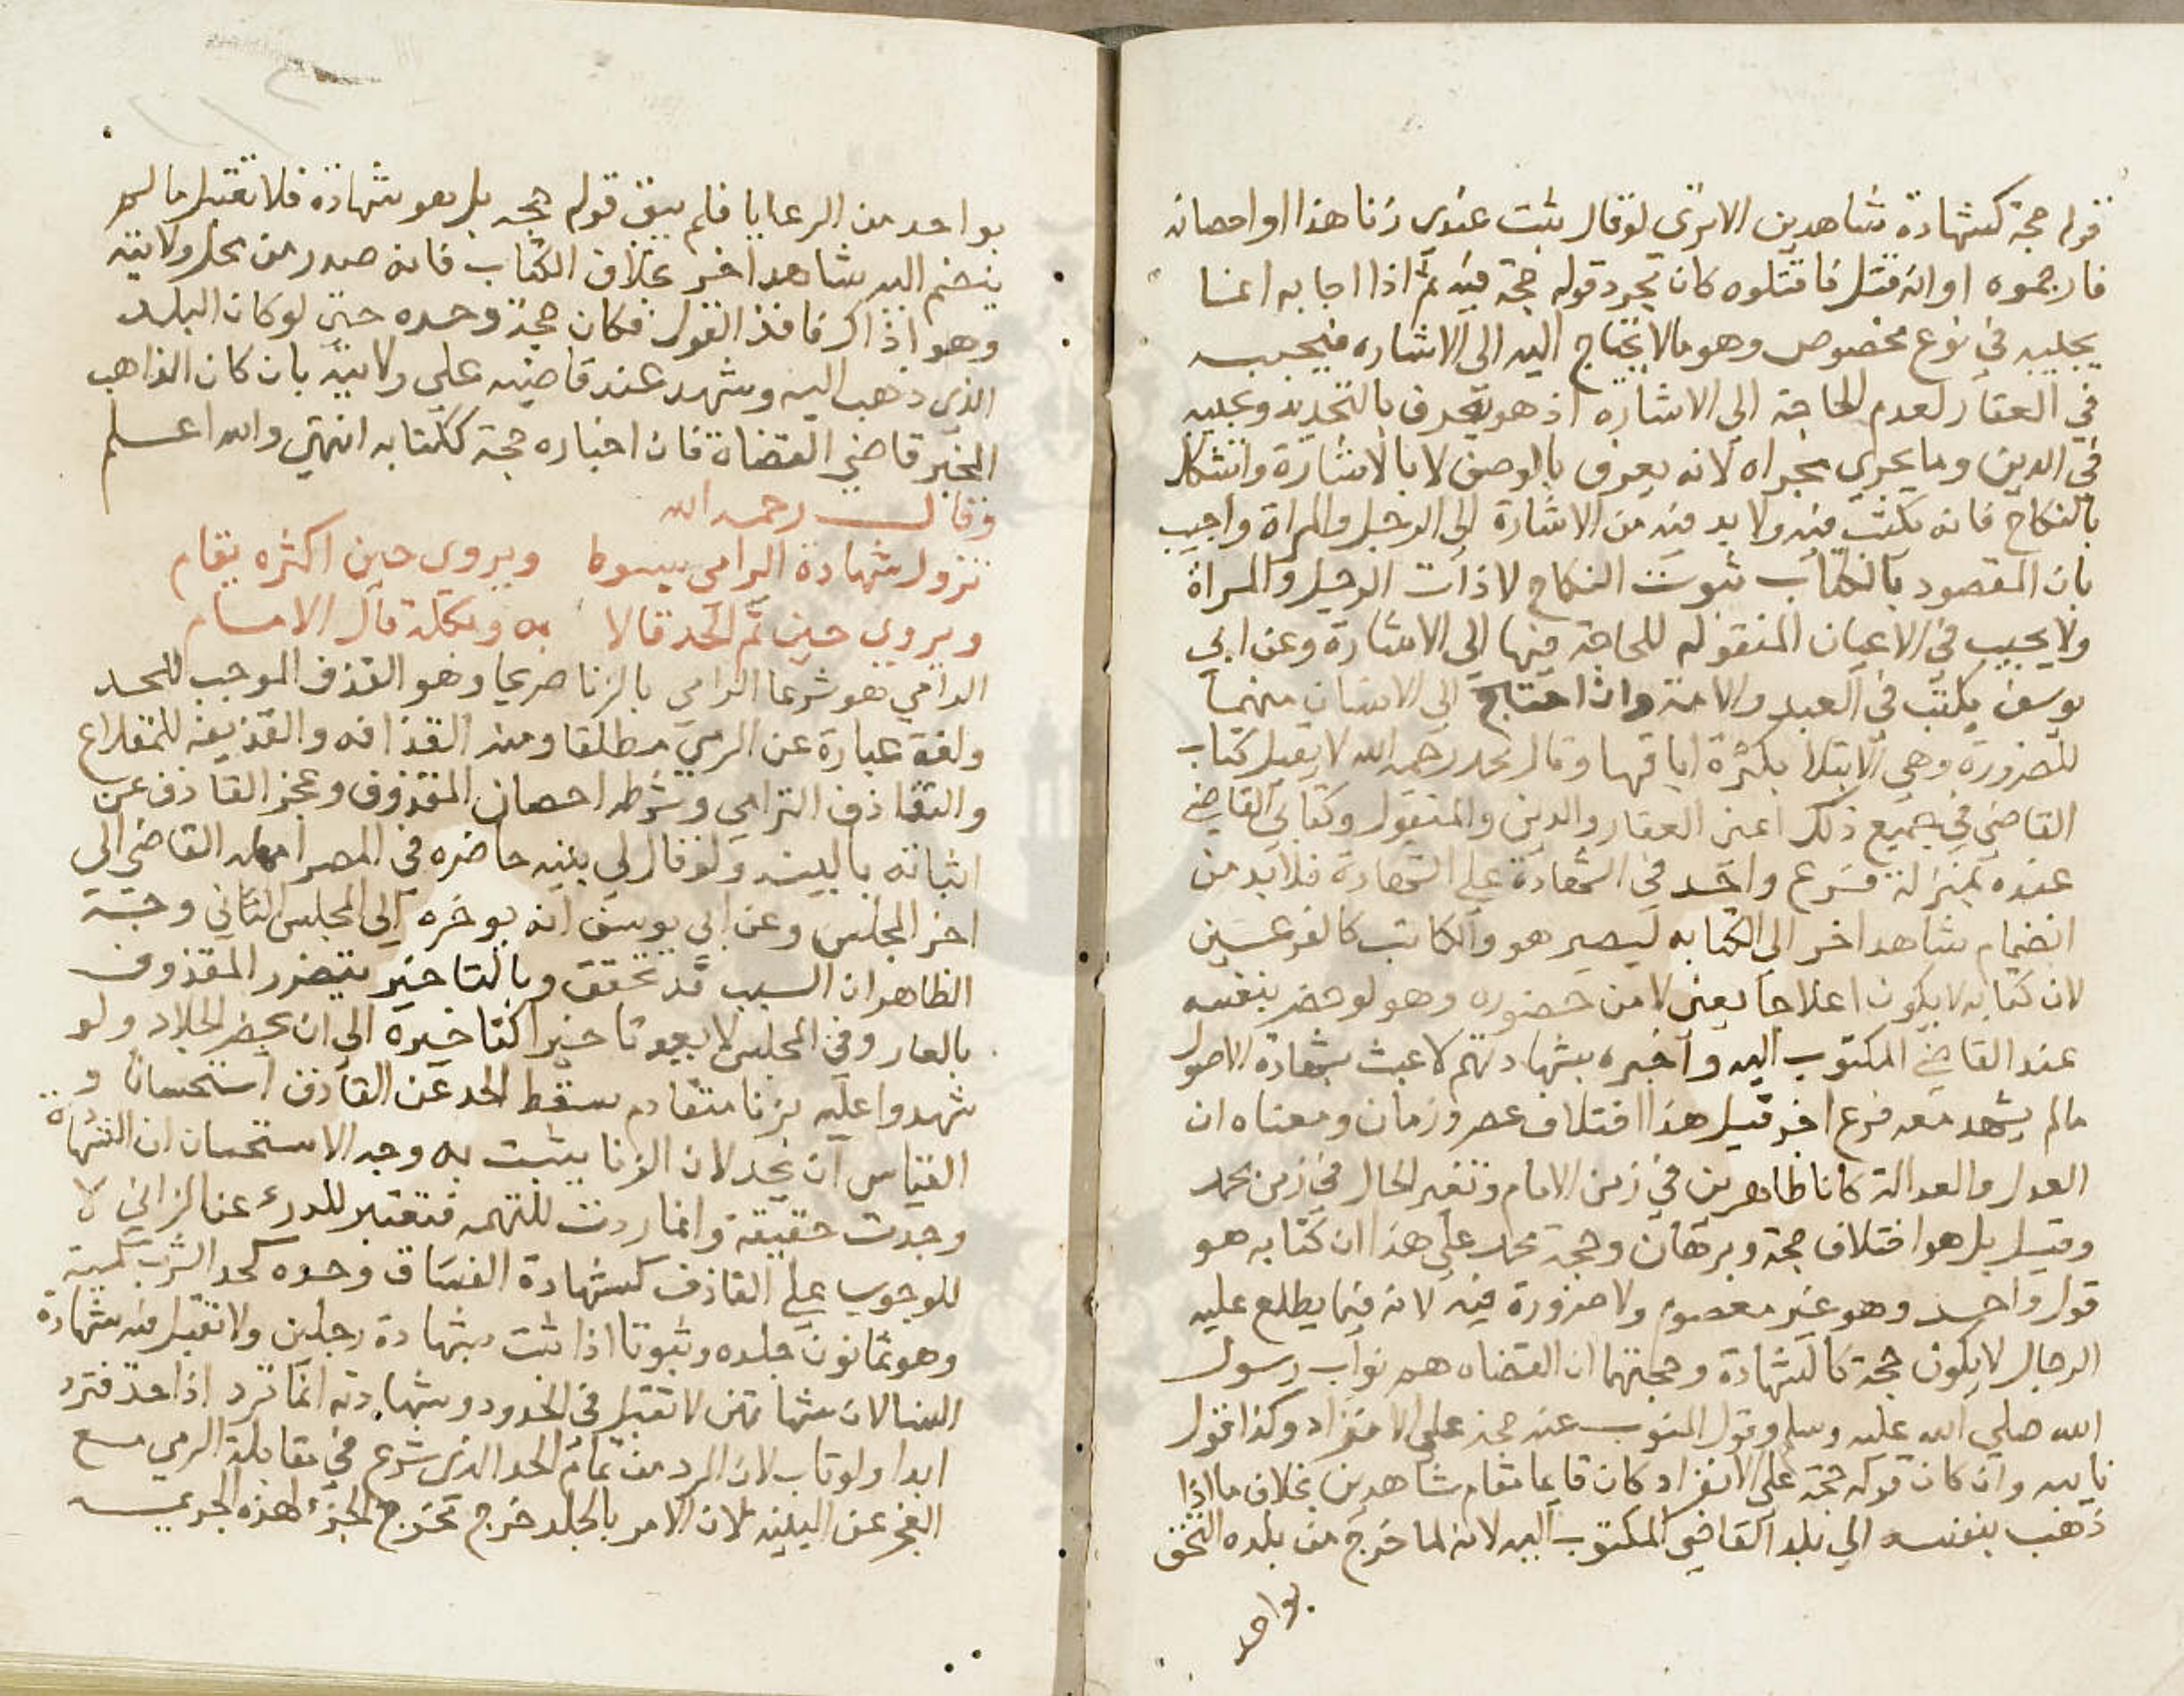 قوله حجة كشهادة شاهدين الا ترى لو قال ثبت عندى زنا هذا او احصانه
فارجموه او انه قتل فاقتلوه كان مجرد قوله حجة فيه ثم اذا اجابه انما
يجيبه في نوع مخصوص وهو ما لا يحتاج اليه الى الاشاره فيجيبه
في العقار لعدم الحاجة الى الاشاره اذ هو يعرف بالتحديد ويجيبه
في الدين وما يجري مجراه لانه يعرف بالوصف لا بالاشارة واشكل
بالنكاح فانه يكتب فيه ولا بد فيه من الاشارة الى الرجل والمراة واجيب
بان المقصود بالكتاب ثبوت النكاح لا ذات الرجل والمراة
ولا يجيب في الاعيان المنقوله للحاجة فيها الى الاشارة وعن ابي
يوسف يكتب في العبد والامة وان احتاج الى الاشاره منهما
للضرورة وهي الابتلا بكثرة اباقهما وقال محمد رحمه الله لا يقبل كتاب
القاضي في جميع ذلك اعني العقار والدين والمنقول وكتابي القاضي
عنده بمنزلة فرع واحد في الشهادة على الشهادة فلا بد من
انضمام شاهد اخر الى الكتابه ليصير هو والكاتب كالفرعين
لان كتابه لا يكون اعلا حالا يعني من حضوره وهو لو حضر بنفسه
عند القاضي المكتوب اليه واخبره بشهادتهم لا عبث بشهادة الاصول
مالم يشهد معه فرع اخر قيل هذا اختلاف عصر وزمان ومعناه ان
العدل والعدالة كانا ظاهرين في زمن الامام وتغير الحال في زمن محمد
وقيل بل هو اختلاف حجة وبرهان وحجة محمد على هذا ان كتابه هو
قول واحد وهو غير معصوم ولا ضرورة فيه لانه فيما يطلع عليه
الرجال لا يكون حجة كالشهادة وحجتهما ان القضاه هم نواب رسول
الله صلى الله عليه وسلم وقول المنوب عنه حجة على الانفراد وكذا قول
نايبه وان كان قوله حجة على الانفراد كان قايما مقام شاهدين بخلاف ما اذا
ذهب بنفسه الى بلد القاضي المكتوب اليه لانه لما خرج من بلده التحق
بواحد
بواحد من الرعايا فلم يبق قوله حجه بل هو شهادة فلا تقبل ما لم
ينضم اليه شاهد اخر بخلاف الكتاب فانه صدر من محل ولايته
وهو اذ ذاك نافذ القول فكان حجة وحده حتى لو كان البلد
الذي ذهب اليه وشهد عند قاضيه على ولايته بان كان الذاهب
المخبر قاضي القضاة فان اخباره حجة ككتابه انتهى والله اعلم
وقال رحمه الله
تزول شهادة الرامى بسوط ويروى حين اكثره يقام
ويروى حين تم الحد قالا به وبكله قال الامام
الرامي هو شرعا الرامي بالزنا صريحا وهو القذف الموجب للحد
ولغة عبارة عن الرمي مطلقا ومنه القذافه والقذيفه للمقلاع
والتقاذف الترامي وشرطه احصان المقذوف وعجز القاذف عن
اثباته بالبينه ولو قال لي بينه حاضره في المصر امهله القاضي الى
اخر المجلس وعن ابي يوسف انه يوخره الى المجلس الثاني وجه
الظاهر ان السبب قد تحقق وبالتاخير يتضرر المقذوف
بالعار وفي المجلس لا يعد تاخيرا كتاخيره الى ان يحضر الجلاد ولو
شهدوا عليه بزنا متقادم سقط الحد عن القاذف استحسانا و
القياس ان يحد لان الزنا يثبت به وجه الاستحسان ان الشهادة
وجدت حقيقة وانما ردت للتهمه فتعتبر للدرء عن الزاني لا
للوجوب على القاذف كشهادة الفساق وحده كحد الشرب كمية
وهو ثمانون جلده وثبوتا اذا ثبت بشهادة رجلين ولا تقبل فيه شهادة
النسا لان شهادتهن لا تقبل في الحدود وشهادته انما ترد اذا حد فترد
ابدا ولو تاب لان الرد من تمام الحد الذى شرع في مقابلة الرمي مع
العجز عن البينه لان الامر بالجلد خرج مخرج الجزاء لهذه الجريمه